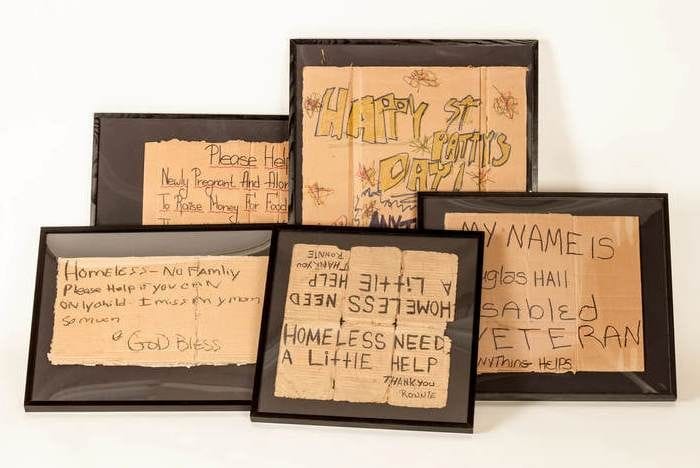 HAPPY ST
PATTYS
DAY!
Please Hel
Newly Pregnant And Alon
To Raise Money For Food
MY NAME IS
uglas HAll
isabled
VETERAN
ANYTHING HELPS
HOMELESS - NO FAMliy
Please Help if you CAN
ONly child - I miss my mom
So much
GOD BLESS
THANK you
RONNIE
HOMELESS NEED
A LittlE HELP
HOMELESS NEED
A LittlE HELP
THANK you
RONNIE